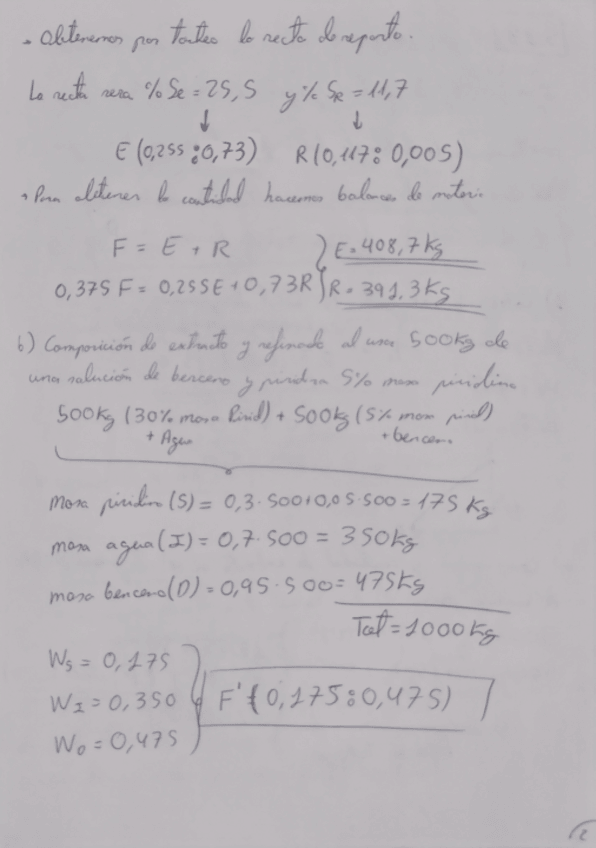 • Obtenemos por tanteo la recta de reparto.
La recta sera % S_E = 25,5 y % S_R = 11,7
↓ ↓
E (0,255 ; 0,73) R (0,117 ; 0,005)
• Para obtener la cantidad hacemos balance de materia.
F = E + R } E = 408,7 Kg
0,375 F = 0,255E + 0,73R } R = 391,3 Kg
b) Composición de extracto y refinado al usar 500Kg de
una solución de benceno y piridina 5% masa piridina
500Kg (30% masa Pirid) + 500Kg (5% masa pirid)
+ Agua + benceno
masa piridina (S) = 0,3 · 500 + 0,05 · 500 = 175 Kg
masa agua (I) = 0,7 · 500 = 350 Kg
masa benceno (D) = 0,95 · 500 = 475 Kg
Tot = 1000 Kg
W_S = 0,175
W_I = 0,350 } F' (0,175 ; 0,475)
W_D = 0,475
2